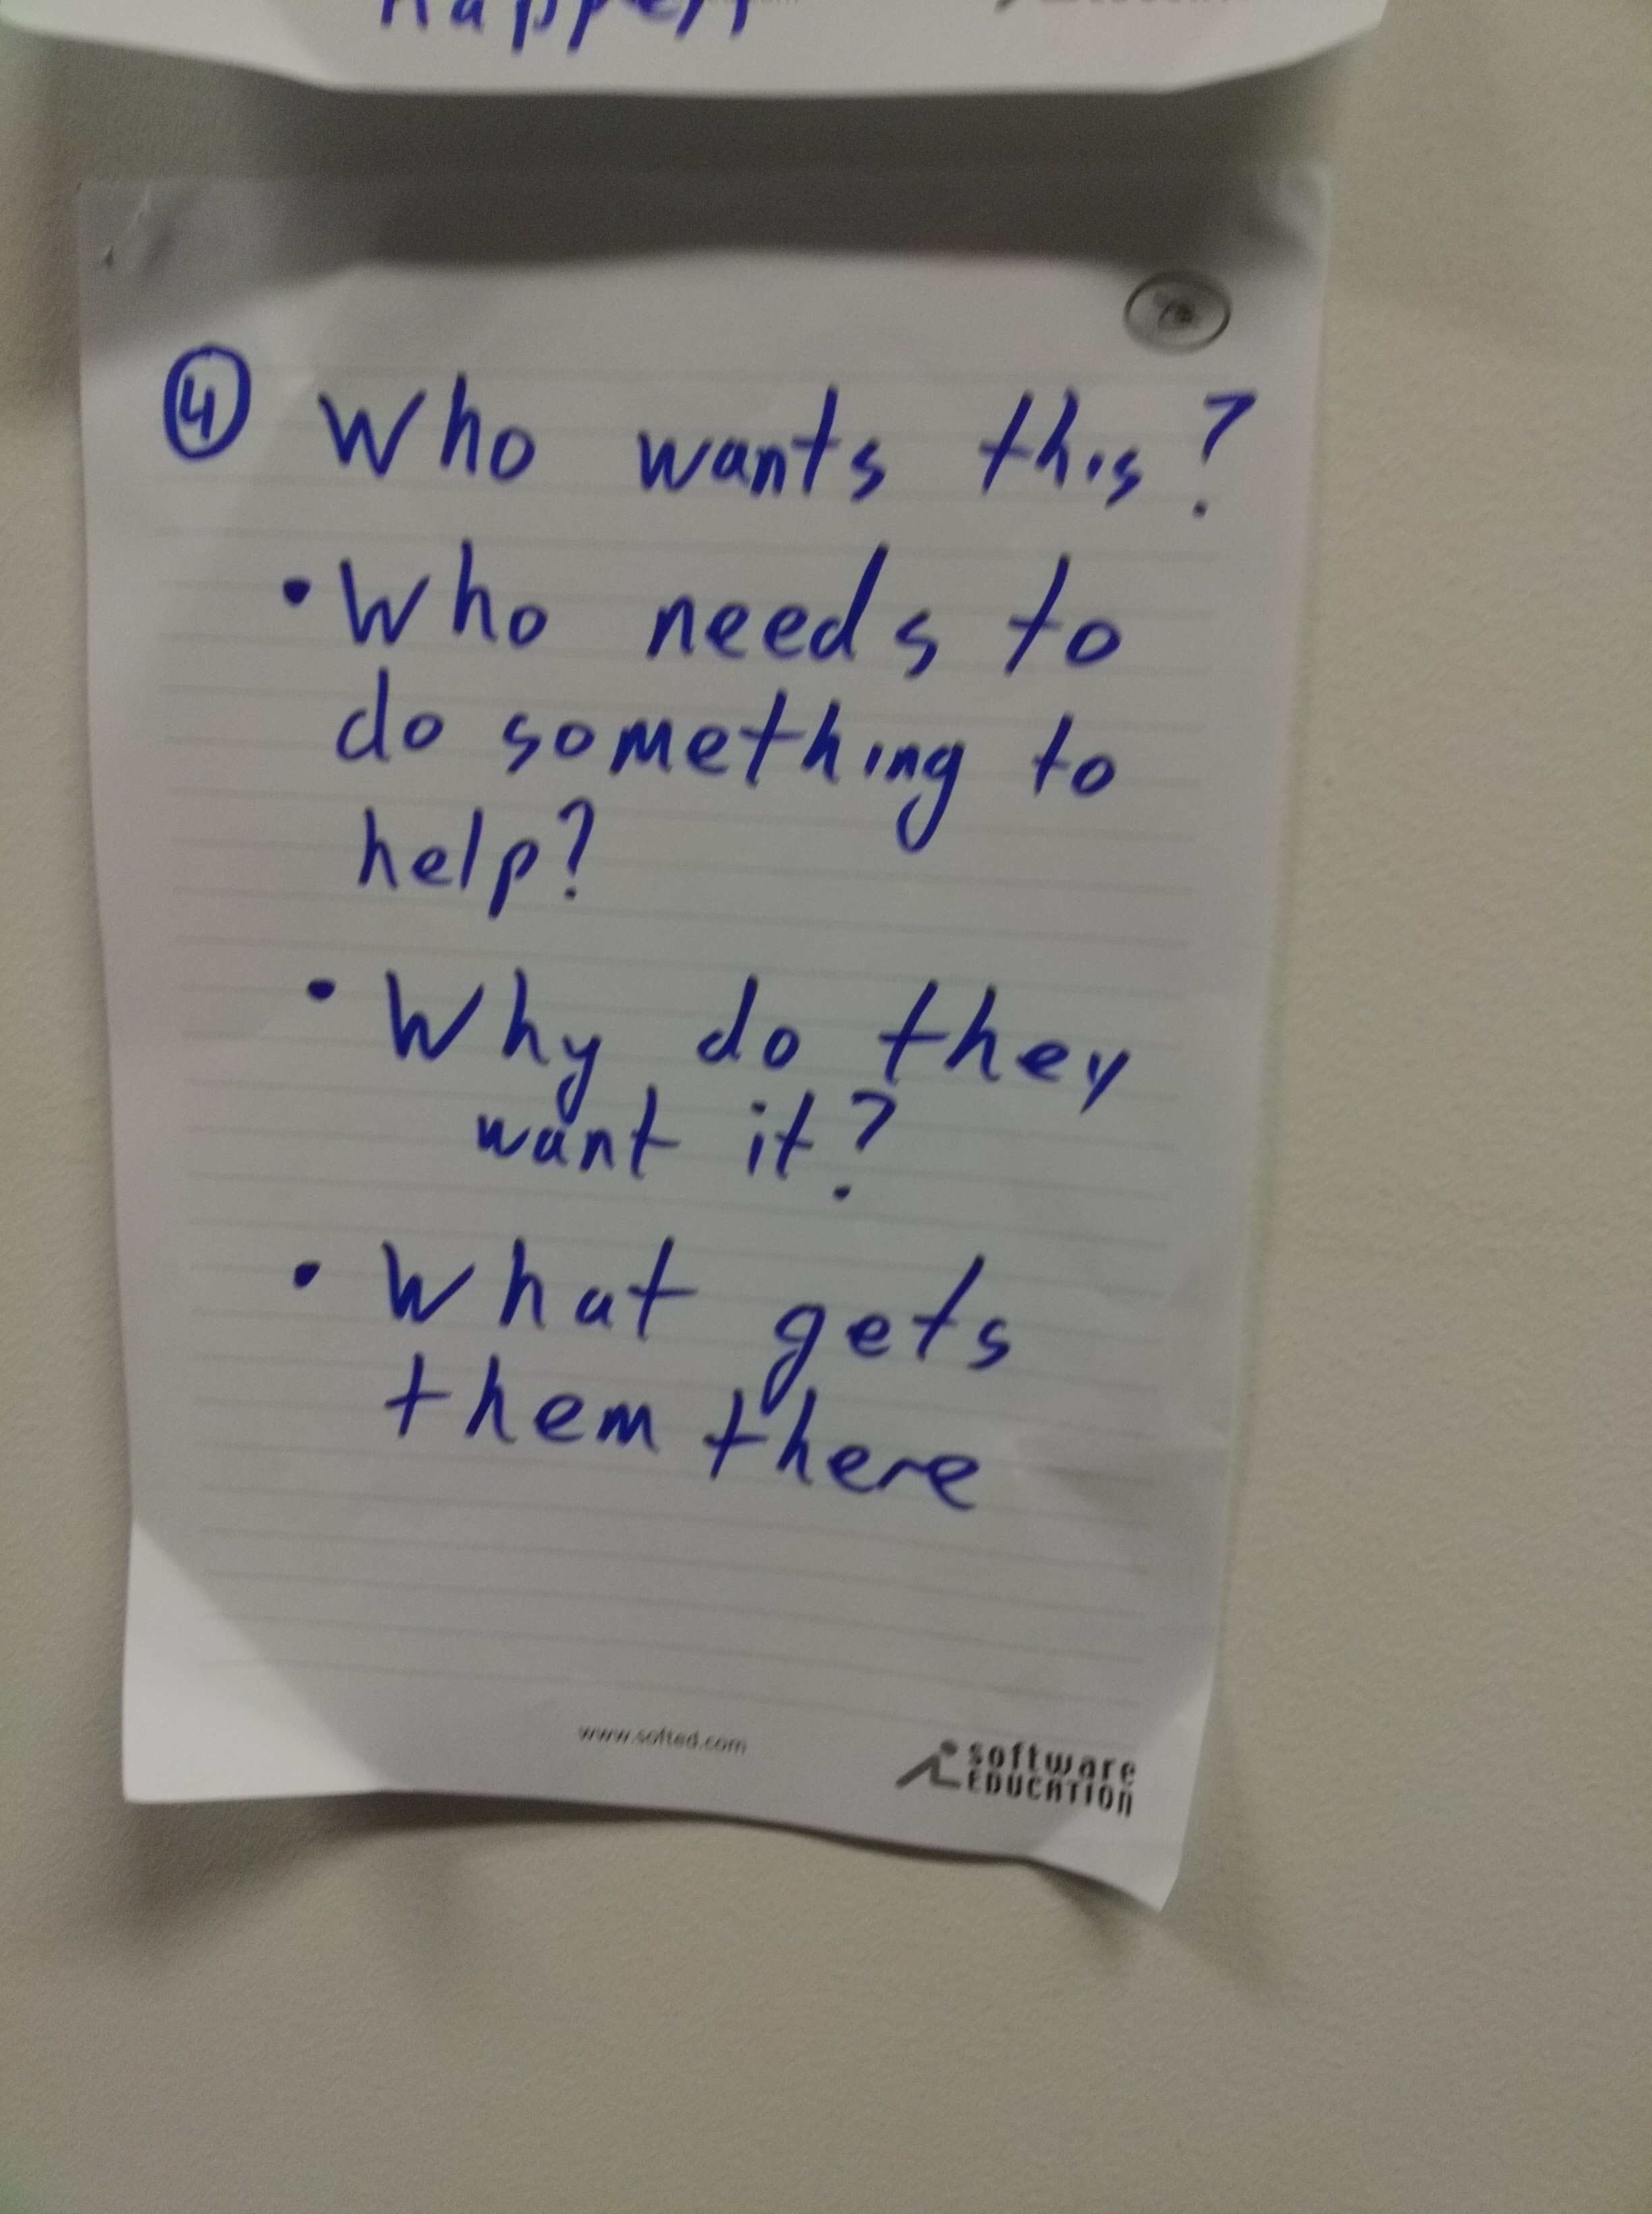 Happen
④ Who wants this?
• Who needs to
do something to
help?
• Why do they
want it?
• What gets
them there
www.softed.com
software
EDUCATION